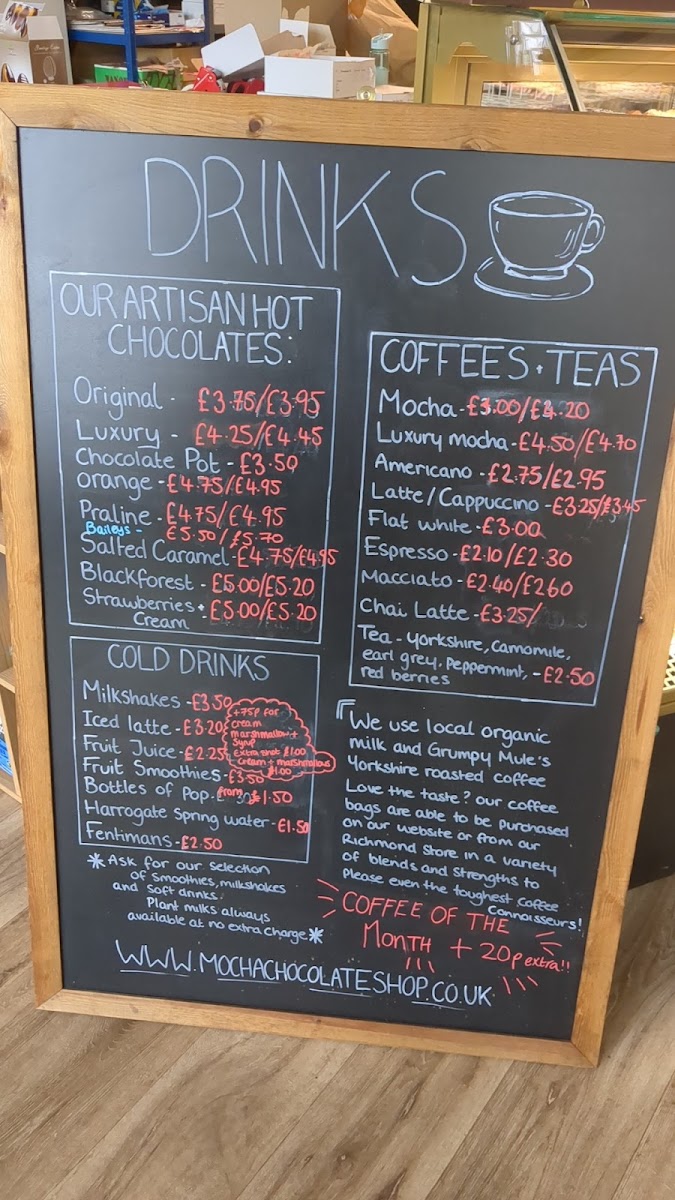 DRINKS
OUR ARTISAN HOT
CHOCOLATES:
Original - £3.75/£3.95
Luxury - £4.25/£4.45
Chocolate Pot - £3.50
orange - £4.75/£4.95
Praline - £4.75/£4.95
Baileys - £5.50/£5.70
Salted Caramel - £4.75/£4.95
Blackforest - £5.00/£5.20
Strawberries + £5.00/£5.20
Cream
COLD DRINKS
Milkshakes - £3.50
Iced latte - £3.20
Fruit Juice - £2.25
Fruit Smoothies - £3.50
Bottles of Pop - from £1.50
Harrogate Spring water - £1.50
Fentimans - £2.50
+75p for
cream
marshmallow +
Syrup
Extra shot £1.00
cream + marshmallows
£1.00
*Ask for our selection
of smoothies, milkshakes
and soft drinks.
Plant milks always
available at no extra charge*
COFFEES + TEAS
Mocha - £3.00/£4.20
Luxury mocha - £4.50/£4.70
Americano - £2.75/£2.95
Latte/Cappuccino - £3.25/£3.45
Flat white - £3.00
Espresso - £2.10/£2.30
Macciato - £2.40/£2.60
Chai Latte - £3.25/
Tea - Yorkshire, Camomile,
earl grey, Peppermint, - £2.50
red berries
We use local organic
milk and Grumpy Mule's
Yorkshire roasted coffee
Love the taste? our coffee
bags are able to be purchased
on our website or from our
Richmond store in a variety
of blends and strengths to
Please even the toughest coffee
Connoisseurs!
COFFEE OF THE
MONTH + 20p extra!!
WWW.MOCHACHOCOLATESHOP.CO.UK